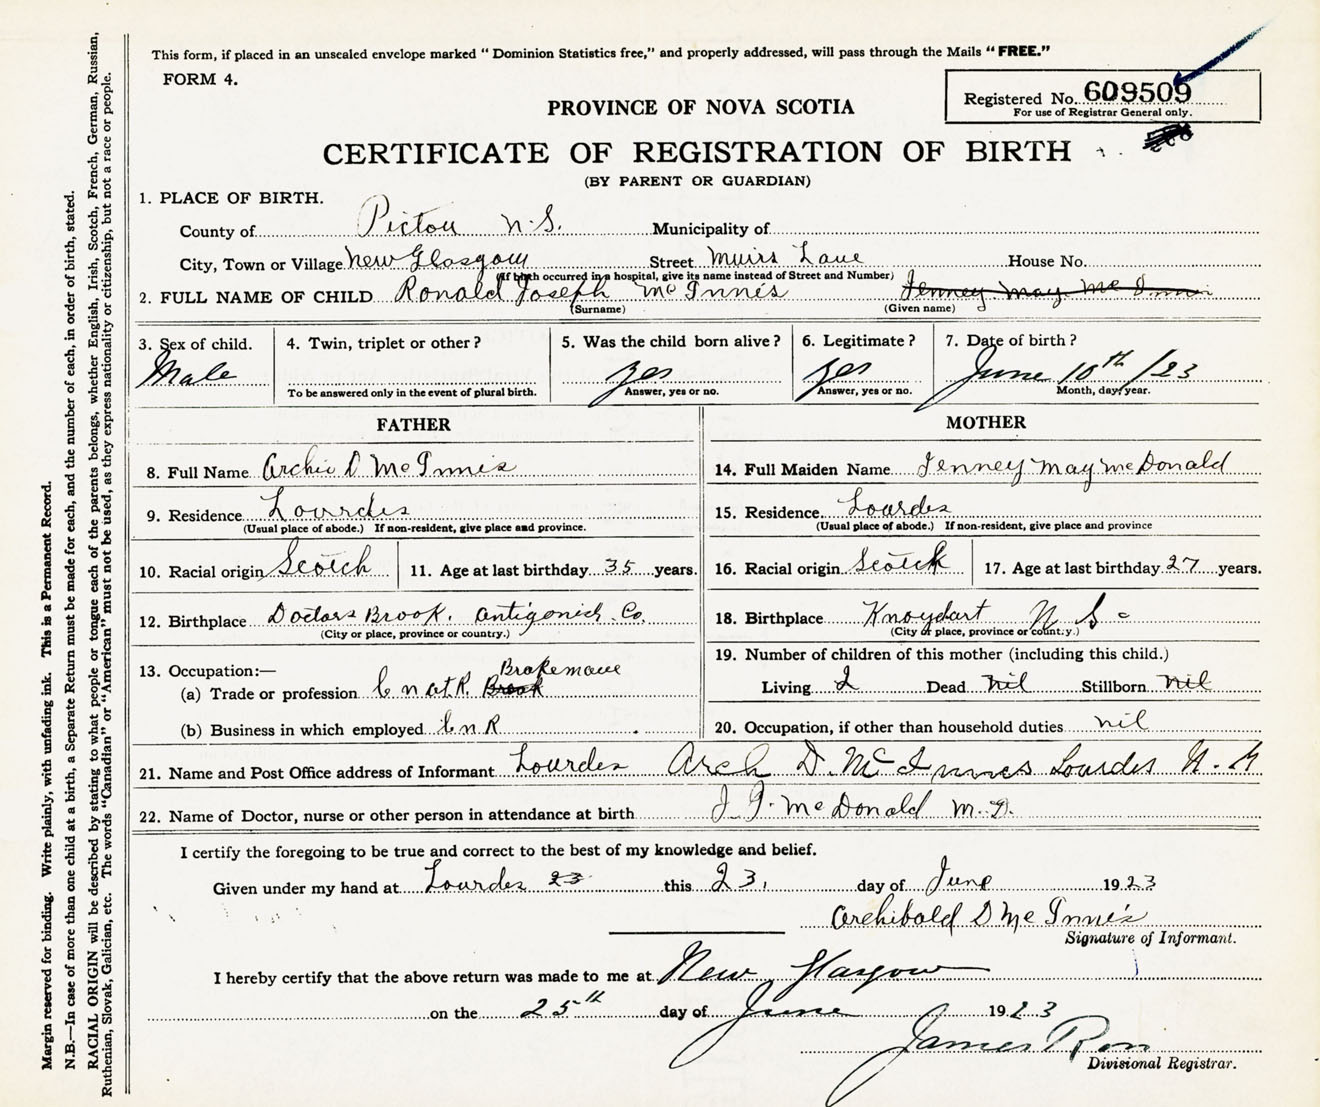 This form, if placed in an unsealed envelope marked "Dominion Statistics free," and properly addressed, will pass through the Mails "FREE."
FORM 4.
Registered No. 609509
For use of Registrar General only.
PROVINCE OF NOVA SCOTIA
CERTIFICATE OF REGISTRATION OF BIRTH
(BY PARENT OR GUARDIAN)
1. PLACE OF BIRTH.
County of Pictou N.S. Municipality of
City, Town or Village New Glasgow Street Muirs Lane House No.
(If birth occurred in a hospital, give its name instead of Street and Number)
2. FULL NAME OF CHILD Ronald Joseph McInnis Jenney May McInnis
(Surname) (Given name)
3. Sex of child. Male
4. Twin, triplet or other?
To be answered only in the event of plural birth.
5. Was the child born alive? yes
Answer, yes or no.
6. Legitimate? yes
Answer, yes or no.
7. Date of birth? June 10th/23
Month, day, year.
FATHER
8. Full Name Archie D McInnis
9. Residence Lourdes
(Usual place of abode.) If non-resident, give place and province.
10. Racial origin Scotch 11. Age at last birthday 35 years.
12. Birthplace Doctors Brook. Antigonish Co.
(City or place, province or country.)
13. Occupation:—
(a) Trade or profession C n R Brook Brakemane
(b) Business in which employed C n R
MOTHER
14. Full Maiden Name Jenney May McDonald
15. Residence Lourdes
(Usual place of abode.) If non-resident, give place and province
16. Racial origin Scotch 17. Age at last birthday 27 years.
18. Birthplace Knoydart N S
(City or place, province or country.)
19. Number of children of this mother (including this child.)
Living 2 Dead nil Stillborn nil
20. Occupation, if other than household duties nil
21. Name and Post Office address of Informant Lourdes Arch D. McInnes Lourdes N.
22. Name of Doctor, nurse or other person in attendance at birth J. J. McDonald M.D.
I certify the foregoing to be true and correct to the best of my knowledge and belief.
Given under my hand at Lourdes 23 this 23, day of June 1923
Archibald D McInnis
Signature of Informant.
I hereby certify that the above return was made to me at New Glasgow
on the 25th day of June 1923
James
Divisional Registrar.
Margin reserved for binding. Write plainly, with unfading ink. This is a Permanent Record.
N.B.—In case of more than one child at a birth, a Separate Return must be made for each, and the number of each, in order of birth, stated.
RACIAL ORIGIN will be described by stating to what people or tongue each of the parents belongs, whether English, Irish, Scotch, French, German, Russian,
Ruthenian, Slovak, Galician, etc. The words "Canadian" or "American" must not be used, as they express nationality or citizenship, but not a race or people.